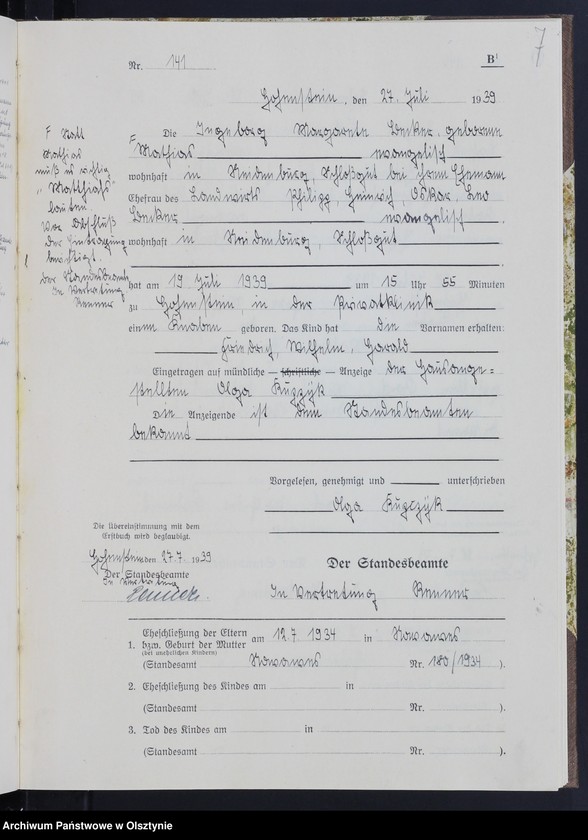 7
7
Nr. 141
B¹
Hohenstein, den 27. Juli 1939
F Statt
Mathias
muß es richtig
"Matthias"
lauten.
Vor Abschluß
der Eintragung
berichtigt.
Der Standesbeamte
In Vertretung
Renner
Die Ingeborg Margarete Becker, geborene
F Mathias evangelisch
wohnhaft in Neidenburg, Schloßgut bei ihrem Ehemann
Ehefrau des Landwirts Philipp, Heinrich, Oskar, Leo
Becker evangelisch
wohnhaft in Neidenburg, Schloßgut
hat am 19. Juli 1939 um 15 Uhr 55 Minuten
zu Hohenstein, in der Privatklinik
einen Knaben geboren. Das Kind hat die Vornamen erhalten:
Friedrich, Wilhelm, Harald
Eingetragen auf mündliche — schriftliche — Anzeige der Hausange=
stellten Olga
Die Anzeigende ist dem Standesbeamten
bekannt
Vorgelesen, genehmigt und unterschrieben
Olga
Die Übereinstimmung mit dem
Erstbuch wird beglaubigt.
Hohenstein den 27.7. 1939
Der Standesbeamte
In Vertretung
Renner
Der Standesbeamte
In Vertretung Renner
Eheschließung der Eltern am 12.7.1934 in Nowawes
1. bzw. Geburt der Mutter
(bei unehelichen Kindern)
(Standesamt Nowawes Nr. 180/1934 ).
2. Eheschließung des Kindes am in
(Standesamt Nr. ).
3. Tod des Kindes am in
(Standesamt Nr. ).
Archiwum Państwowe w Olsztynie